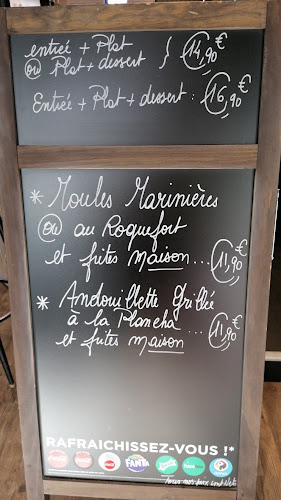 entrée + Plat
ou Plat + dessert } 14,90€
Entrée + Plat + dessert : 16,90€
* Moules Marinières
ou au Roquefort
et frites maison... 11,90€
* Andouillette Grillée
à la Plancha
et frites maison ... 11,90€
RAFRAICHISSEZ-VOUS !*
FANTA